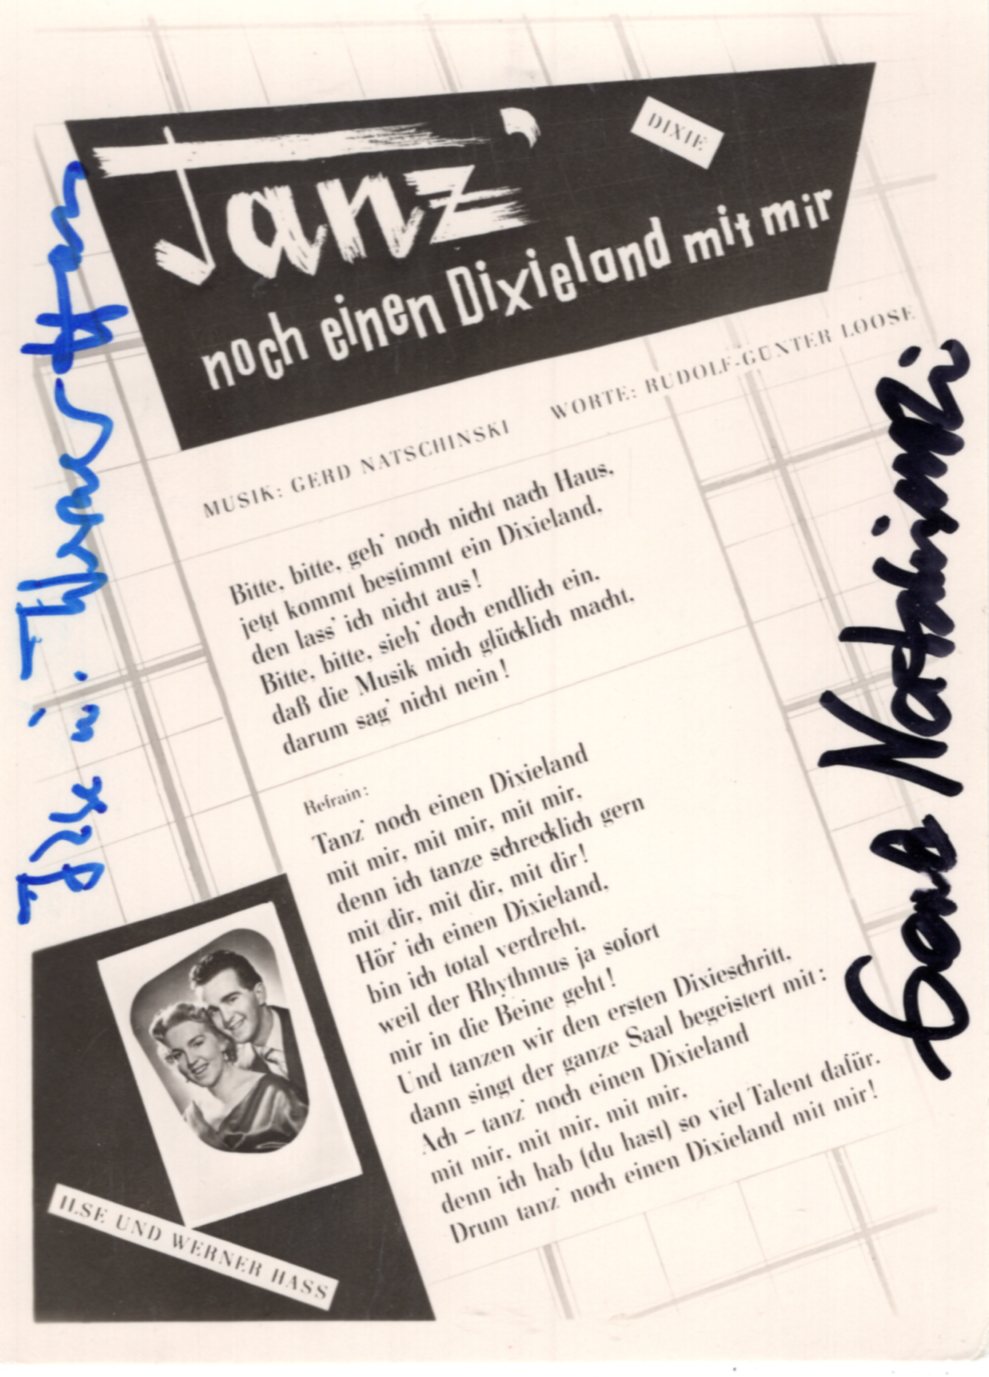 Tanz'
DIXIE
noch einen Dixieland mit mir
MUSIK: GERD NATSCHINSKI WORTE: RUDOLF-GÜNTER LOOSE
Bitte, bitte, geh' noch nicht nach Haus,
jetzt kommt bestimmt ein Dixieland,
den lass' ich nicht aus!
Bitte, bitte, sieh' doch endlich ein,
daß die Musik mich glücklich macht,
darum sag' nicht nein!
Refrain:
Tanz' noch einen Dixieland
mit mir, mit mir, mit mir,
denn ich tanze schrecklich gern
mit dir, mit dir, mit dir!
Hör' ich einen Dixieland,
bin ich total verdreht,
weil der Rhythmus ja sofort
mir in die Beine geht!
Und tanzen wir den ersten Dixieschritt,
dann singt der ganze Saal begeistert mit:
Ach – tanz' noch einen Dixieland
mit mir, mit mir, mit mir,
denn ich hab (du hast) so viel Talent dafür.
Drum tanz' noch einen Dixieland mit mir!
ILSE UND WERNER HASS
Ilse u. Werner Hass
Gerd Natschinski